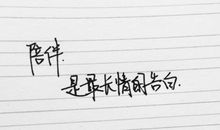 陪伴
是最长情的告白.